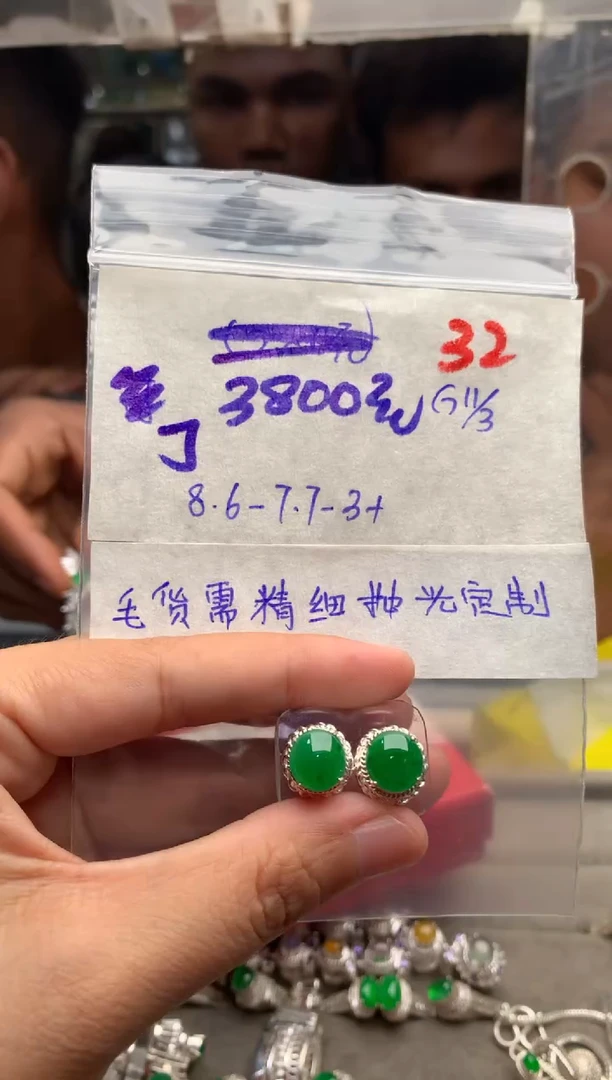 32
3800元
G11/3
8.6-7.7-3+
毛货需精细抛光定制